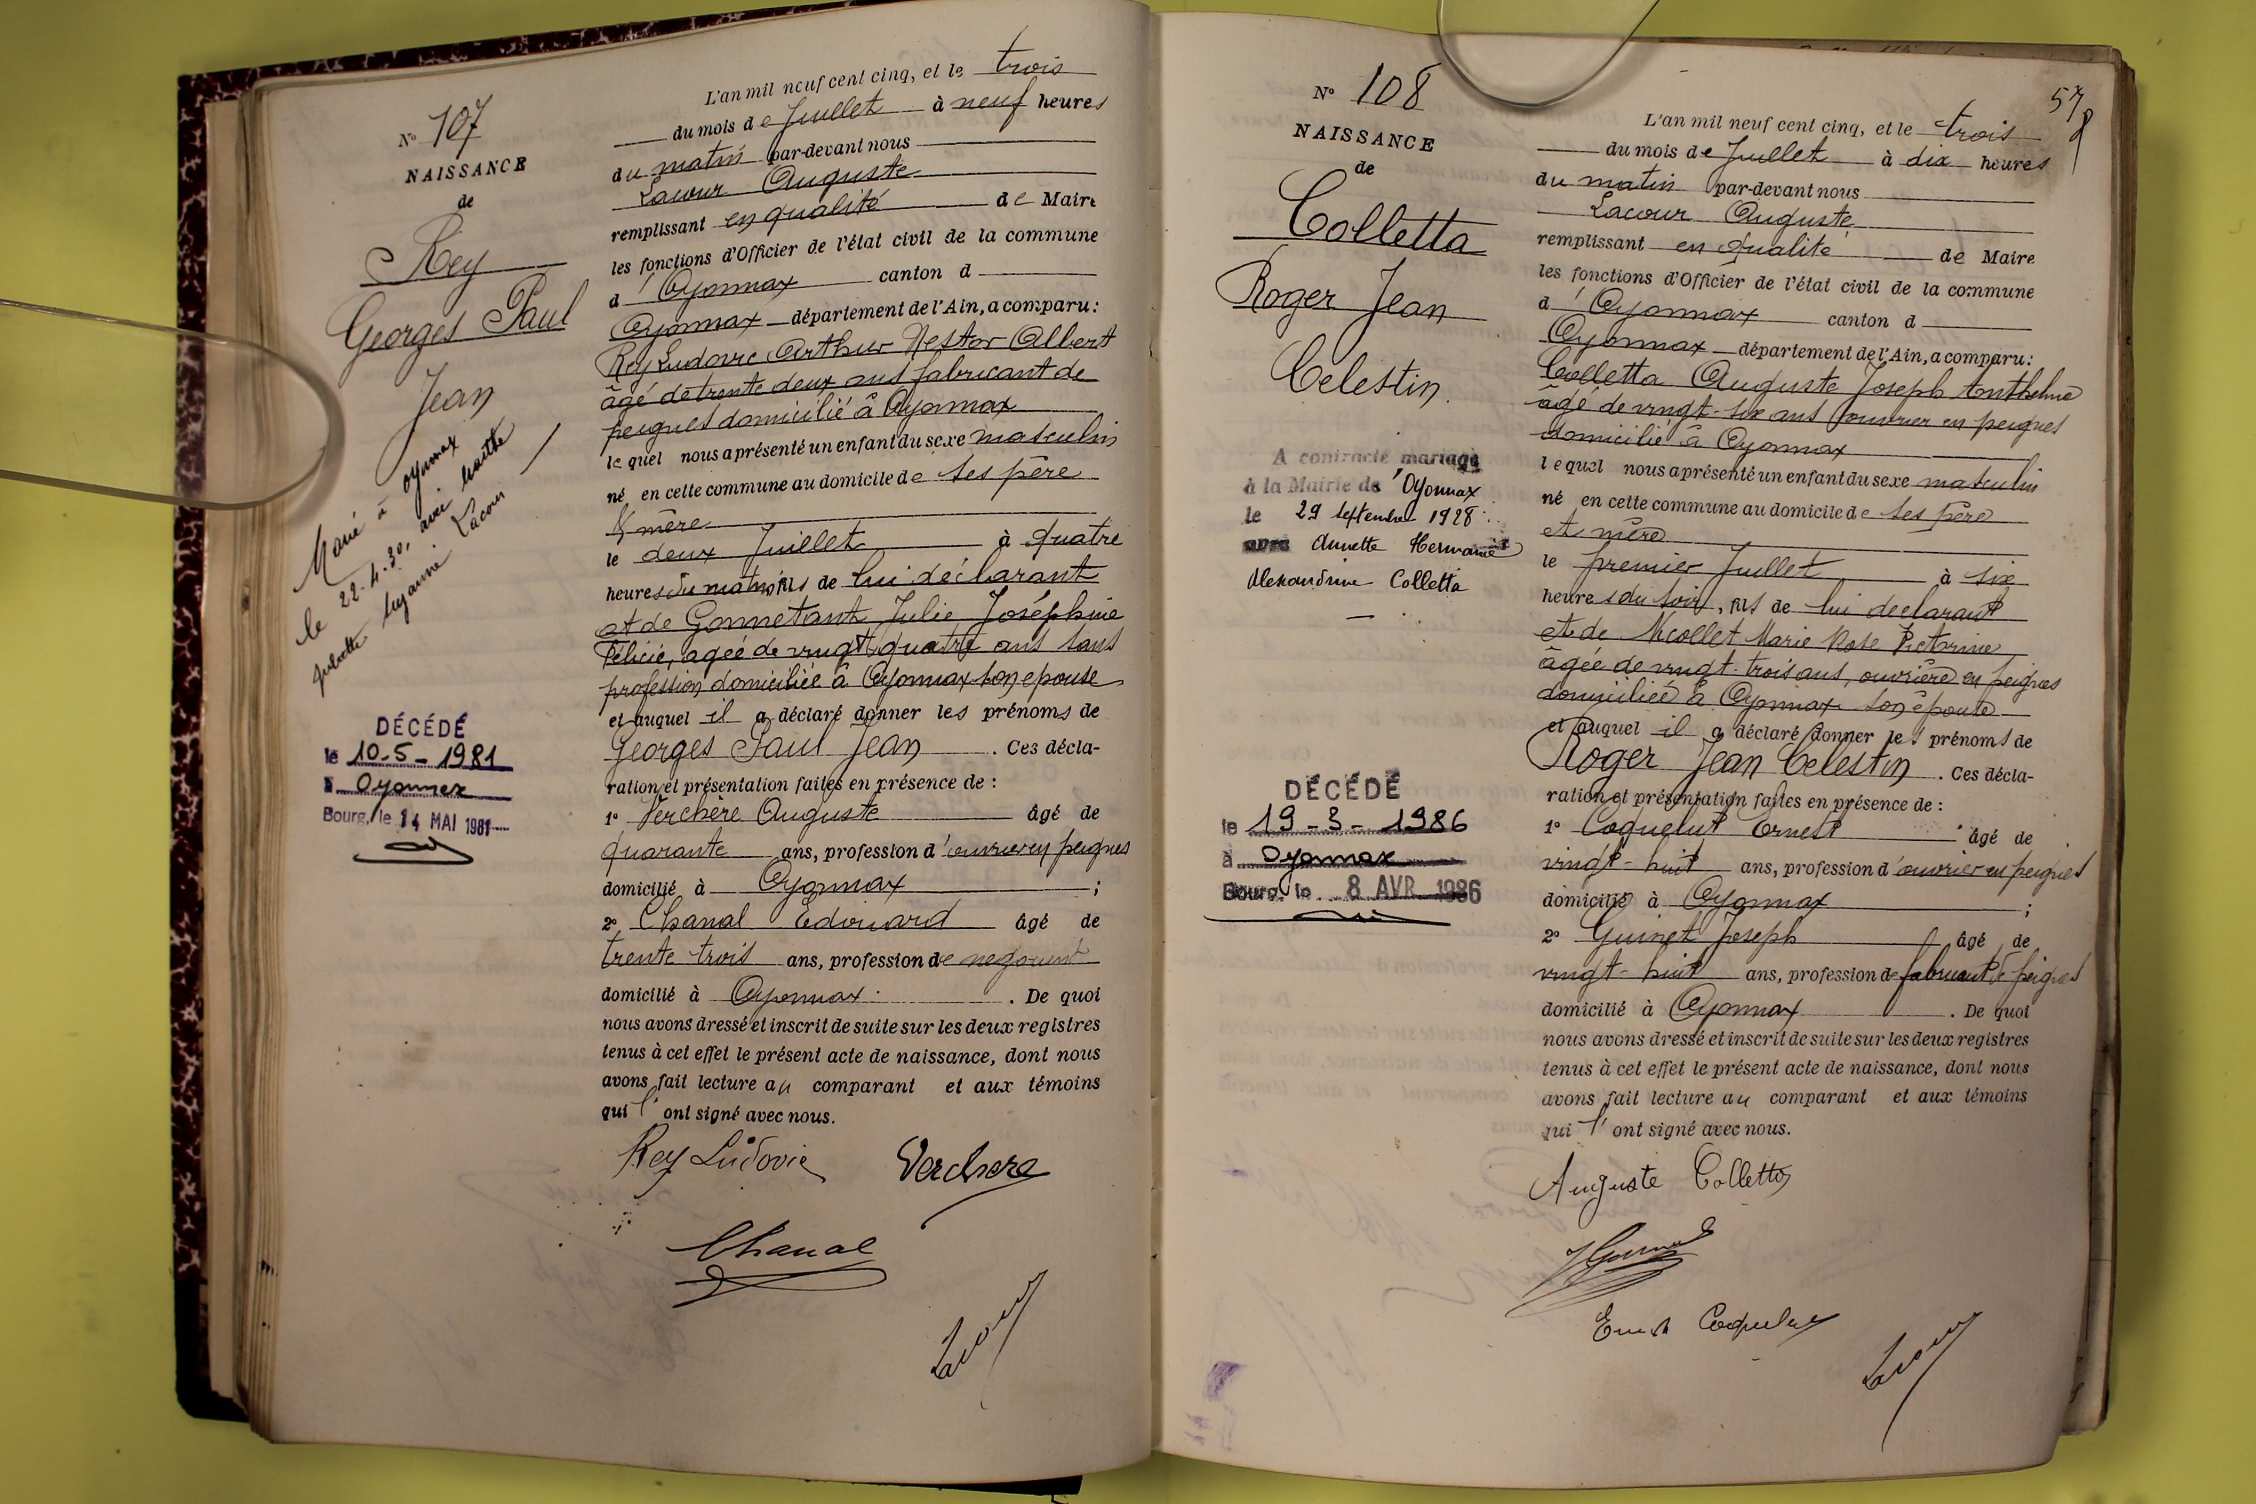 N° 107
NAISSANCE
de
Rey
Georges Paul
Jean
Marié à Oyonnax
le 22.4.30, avec Marthe
Juliette Suzanne Lacour
DÉCÉDÉ
le 10-5-1981
à Oyonnax
Bourg, le 14 MAI 1981
L'an mil neuf cent cinq, et le trois
du mois de Juillet à neuf heures
du matin par-devant nous
Lacour Auguste
remplissant en qualité de Maire
les fonctions d'Officier de l'état civil de la commune
d'Oyonnax canton d
Oyonnax département de l'Ain, a comparu:
Rey Ludovic Arthur Nestor Albert
âgé de trente deux ans fabricant de
peignes domicilié à Oyonnax
lequel nous a présenté un enfant du sexe masculin
né en cette commune au domicile de ses père
& mère
le deux Juillet à quatre
heures du matin, fils de lui déclarant
et de Gonnetant Julie Joséphine
Félicie, agée de vingt quatre ans sans
profession domiciliée à Oyonnax son epouse
et auquel il a déclaré donner les prénoms de
Georges Paul Jean. Ces décla-
ration et présentation faites en présence de :
1° Verchère Auguste âgé de
quarante ans, profession d'ouvrier en peignes
domicilié à Oyonnax ;
2° Chanal Edouard âgé de
trente trois ans, profession de negociant
domicilié à Oyonnax. De quoi
nous avons dressé et inscrit de suite sur les deux registres
tenus à cet effet le présent acte de naissance, dont nous
avons fait lecture au comparant et aux témoins
qui l'ont signé avec nous.
Rey Ludovic Verchere
Chanal
Lacour
57
N° 108
NAISSANCE
de
Colletta
Roger Jean
Celestin.
A contracté mariage
à la Mairie de Oyonnax
le 29 septembre 1928
avec Annette Hermance
Alexandrine Colletta
DÉCÉDÉ
le 19-3-1986
à Oyonnax
Bourg, le 8 AVR 1986
L'an mil neuf cent cinq, et le trois
du mois de Juillet à dix heures
du matin par-devant nous
Lacour Auguste
remplissant en qualité de Maire
les fonctions d'Officier de l'état civil de la commune
d'Oyonnax canton d
Oyonnax département de l'Ain, a comparu:
Colletta Auguste Joseph Anthelme
âgé de vingt-six ans ouvrier en peignes
domicilié à Oyonnax
lequel nous a présenté un enfant du sexe masculin
né en cette commune au domicile de ses père
et mère
le premier Juillet à six
heures du soir, fils de lui declarant
et de Nicollet Marie Rose Victorine
âgée de vingt-trois ans, ouvrière en peignes
domiciliée à Oyonnax son épouse
et auquel il a déclaré donner les prénoms de
Roger Jean Celestin. Ces décla-
ration et présentation faites en présence de :
1° Coquelut Ernest âgé de
vingt-huit ans, profession d'ouvrier en peignes
domicilié à Oyonnax ;
2° Guinet Joseph âgé de
vingt-huit ans, profession de fabricant de peignes
domicilié à Oyonnax. De quoi
nous avons dressé et inscrit de suite sur les deux registres
tenus à cet effet le présent acte de naissance, dont nous
avons fait lecture au comparant et aux témoins
qui l'ont signé avec nous.
Auguste Colletta
Ernest Coquelut
Lacour